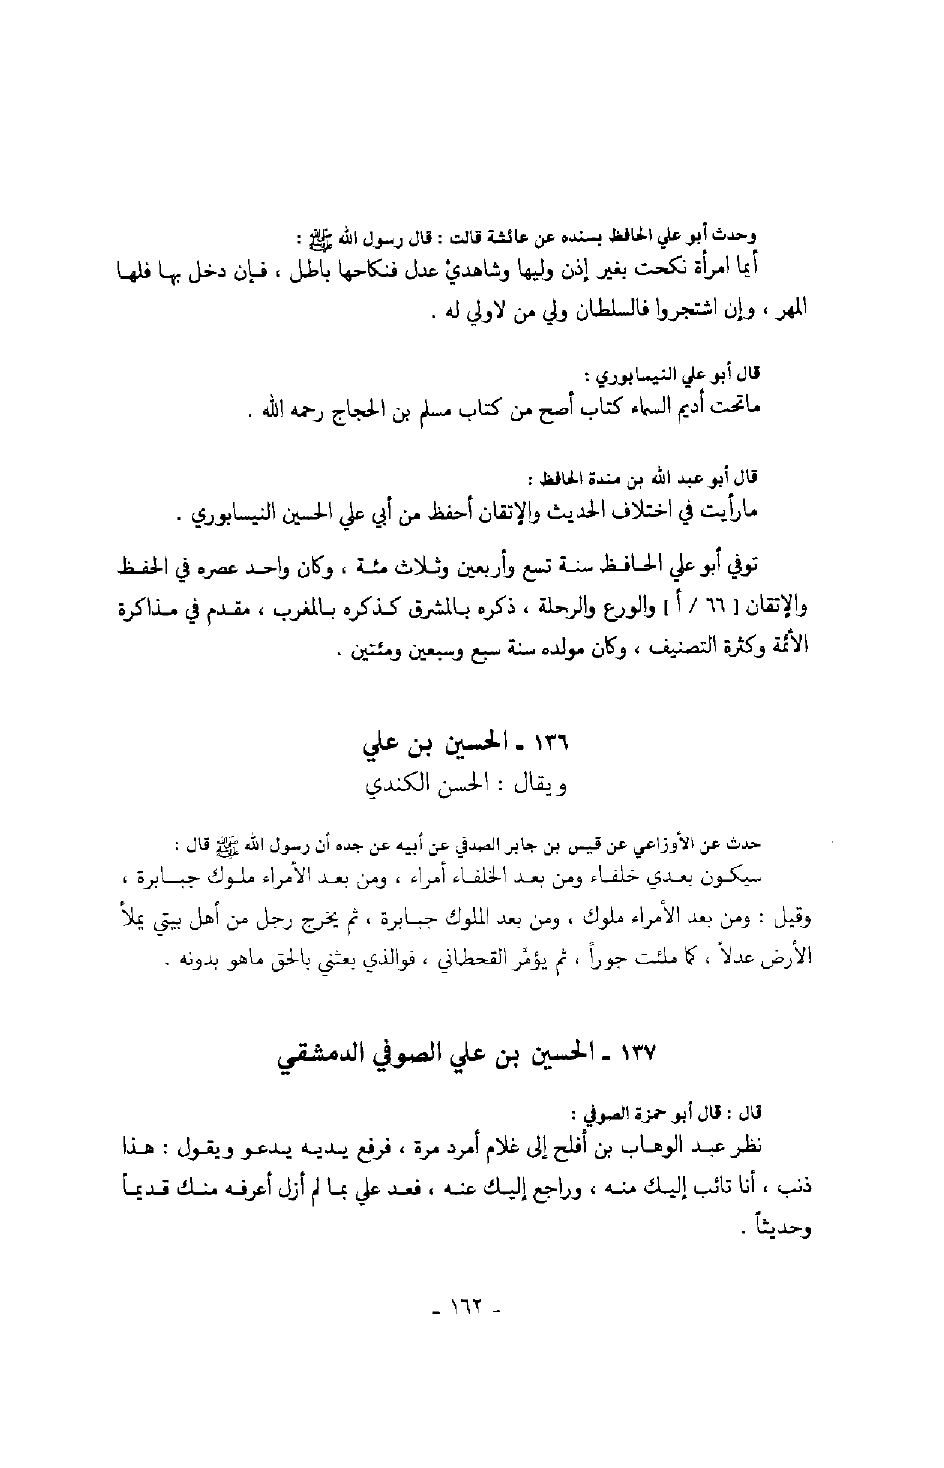 وحدث أبو علي الحافظ بسنده عن عائشة قالت : قال رسول الله ﷺ :
أيما امرأة نكحت بغير إذن وليها وشاهديْ عدل فنكاحها باطل ، فإن دخل بها فلها
المهر ، وإن اشتجروا فالسلطان ولي من لاولي له .
قال أبو علي النيسابوري :
ماتحت أديم السماء كتاب أصح من كتاب مسلم بن الحجاج رحمه الله .
قال أبو عبد الله بن مندة الحافظ :
مارأيت في اختلاف الحديث والإتقان أحفظ من أبي علي الحسين النيسابوري .
توفي أبو علي الحافظ سنة تسع وأربعين وثلاث مئة ، وكان واحد عصره في الحفظ
والإتقان [ ٦٦ / أ ] والورع والرحلة ، ذكره بالمشرق كذكره بالمغرب ، مقدم في مذاكرة
الأئمة وكثرة التصنيف ، وكان مولده سنة سبع وسبعين ومئتين .
١٣٦ ـ الحسين بن علي
ويقال : الحسن الكندي
حدث عن الأوزاعي عن قيس بن جابر الصدفي عن أبيه عن جده أن رسول الله ﷺ قال :
سيكون بعدي خلفاء ومن بعد الخلفاء أمراء ، ومن بعد الأمراء ملوك جبابرة ،
وقيل : ومن بعد الأمراء ملوك ، ومن بعد الملوك جبابرة ، ثم يخرج رجل من أهل بيتي يملأ
الأرض عدلاً ، كما ملئت جوراً ، ثم يؤمَّر القحطاني ، فوالذي بعثني بالحق ماهو بدونه .
١٣٧ ـ الحسين بن علي الصوفي الدمشقي
قال : قال أبو حمزة الصوفي :
نظر عبد الوهاب بن أفلح إلى غلام أمرد مرة ، فرفع يديه يدعو ويقول : هذا
ذنب ، أنا تائب إليك منه ، وراجع إليك عنه ، فعد علي بما لم أزل أعرفه منك قديماً
وحديثاً .
ـ ١٦٢ ـ